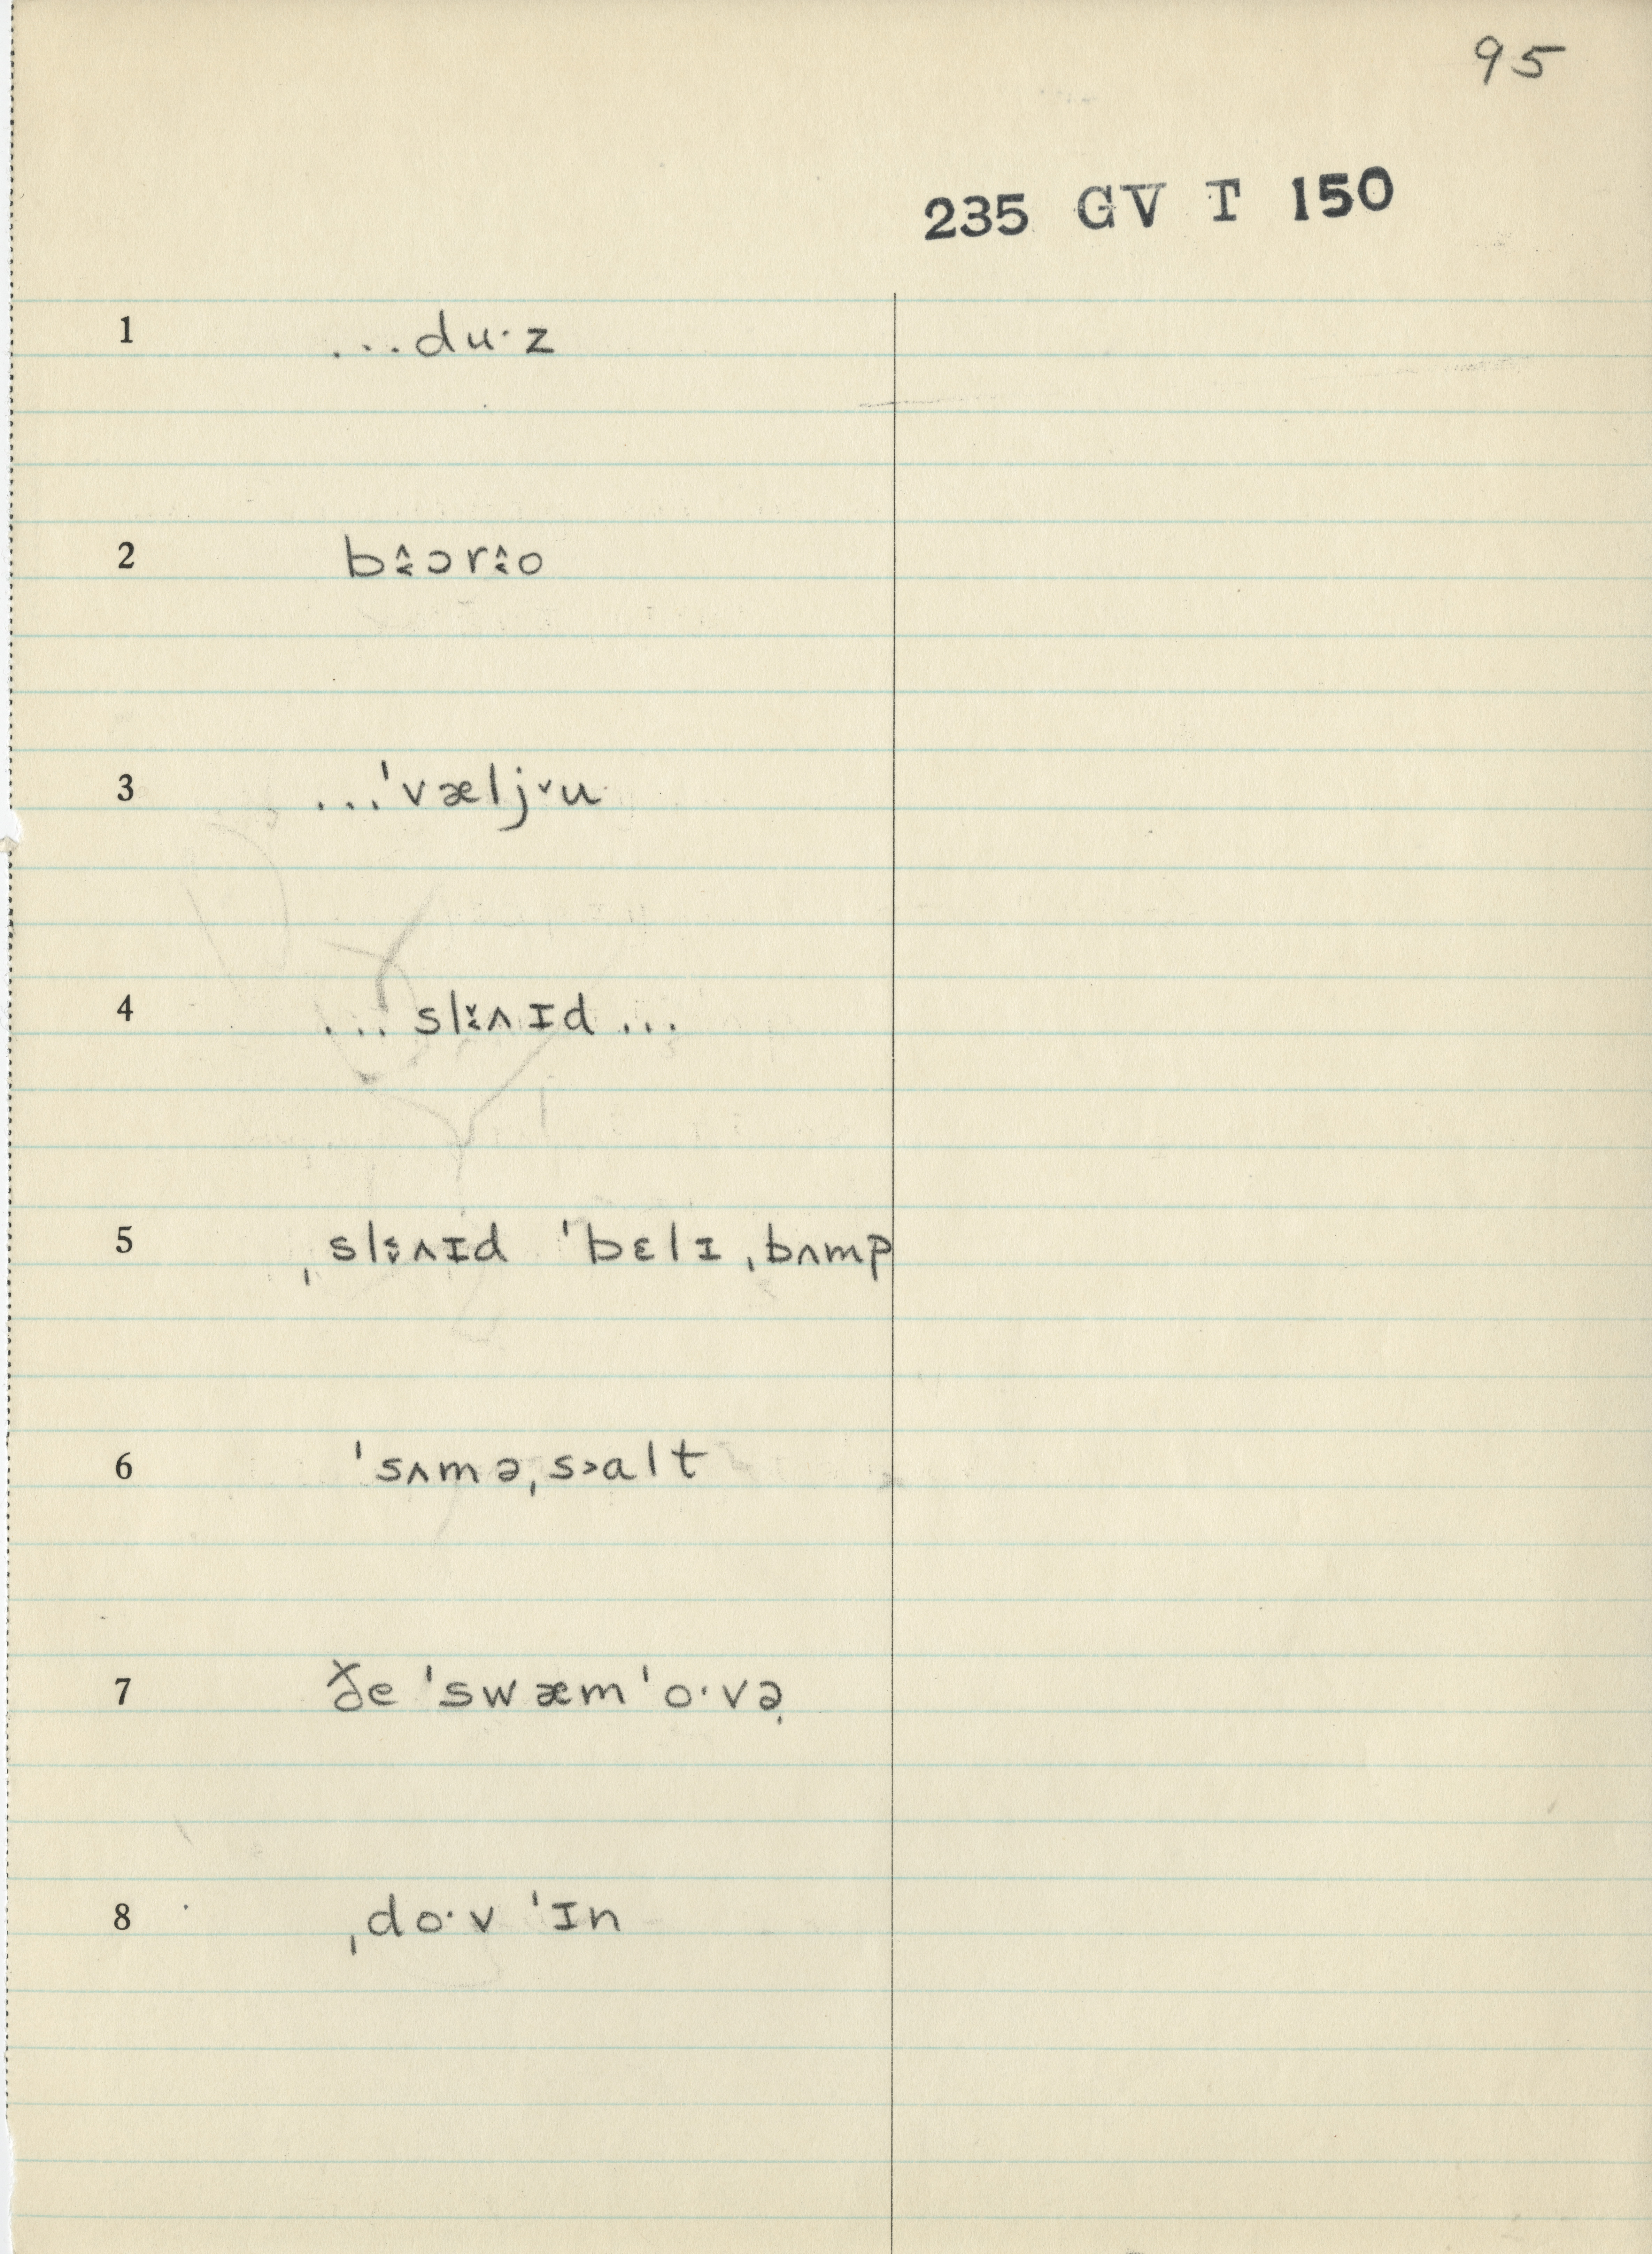 95
235 GV T 150
1 ...du·z
2 b˄˂ɔr˄˂o
3 ...ˈvælj˅u·
4 ... sl˅˂ʌɪd ...
5 ˌsl˂˅ʌɪd ˈbɛlɪˌbʌmp
6 ˈsʌməˌs˃alt
7 ðe ˈswæmˈo·və̣
8 ˌdo·v ˈɪn